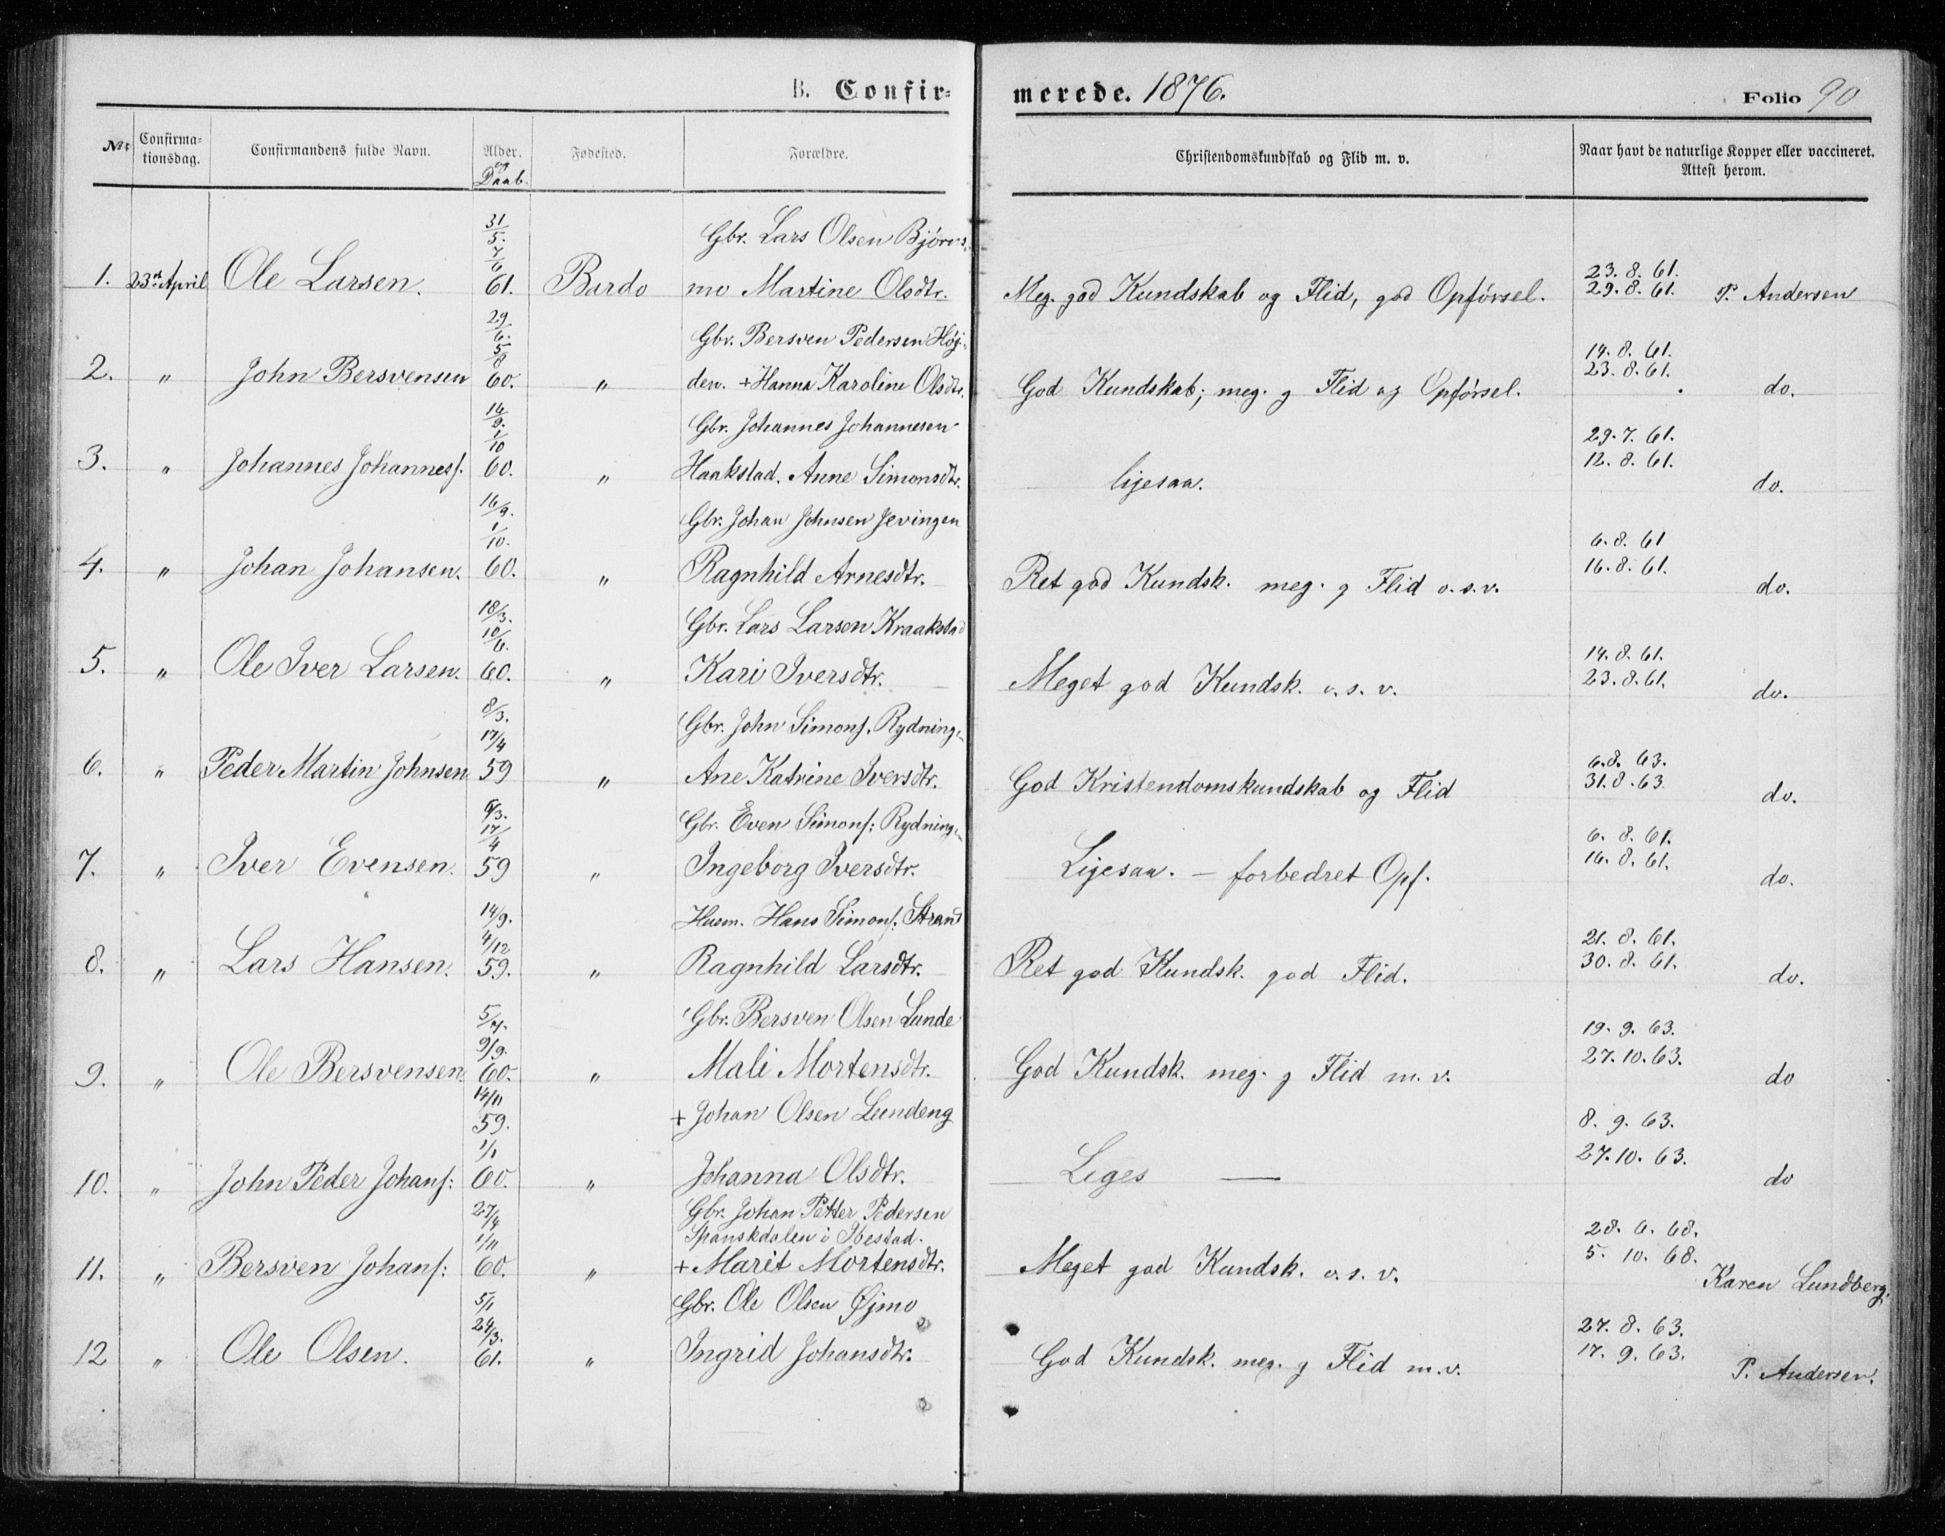 B. Confirmerede. 1876. Folio 90
Nr. Confirmationsdag. Confirmandens fulde Navn. Alder. og Daab. Fødested. Forældre. Christendomskundskab og Flid m. v. Naar havt de naturlige Kopper eller vaccineret. Attest herom.
31/5. Gbr. Lars Olsen Bjørns
7/6 23. 8. 61.
1. 23de April Ole Larsen. 61. Bardo mo Martine Olsdtr. Meg. god Kundskab og Flid, god Opførsel. 29. 8. 61. P. Andersen
29/6. Gbr. Bersven Pedersen Høg-
5/8 14. 8. 61.
2. " John Bersvensen 60. " den. + Hanna Karoline Olsdtr. God Kundskab; meg. g Flid og Opførsel. 23. 8. 61. do.
14/9. Gbr. Johannes Johannesen
1/10 29. 7. 61.
3. " Johannes Johannesf. 60. " Haakstad. Anne Simonsdtr. ligesaa. 12. 8. 61. do.
16/9. Gbr. Johan Johnsen Jevingen
1/10. 6. 8. 61
4. " Johan Johansen. 60. " Ragnhild Arnesdtr. Ret god Kundsk. meg. g Flid o. s. v. 16. 8. 61. do.
18/3. Gbr. Lars Larsen Kraakstad
10/6. 14. 8. 61.
5. " Ole Iver Larsen. 60. " Kari Iversdtr. Meget god Kundsk. o. s. v. 23. 8. 61. do.
8/3. Gbr. John Simonf. Rydning-
17/4 6. 8. 63.
6. " Peder Martin Johnsen 59 " Ane Katrine Iversdtr. God Kristendomskundskab og Flid 31. 8. 63. do.
6/3. Gbr. Even Simonf: Rydning-
17/4 6. 8. 61.
7. " Iver Evensen. 59 " Ingeborg Iversdtr. Ligesaa. - forbedret Opf. 16. 8. 61. do.
14/9. Husm. Hans Simonf: Strand
4/12 21. 8. 61.
8. " Lars Hansen. 59. " Ragnhild Larsdtr. Ret god Kundsk. god Flid. 30. 8. 61. do.
5/7. Gbr. Bersven Olsen Lunde
9/9. 19. 9. 63.
9. " Ole Bersvensen 60. " Mali Mortensdtr. God Kundsk. meg. g Flid m. v. 27. 10. 63. do
14/11 + Johan Olsen Lundeng
59. 8. 9. 63.
1/1
10. " John Peder Johanf: 60. " Johanna Olsdtr. Liges — 27. 10. 63. do
27/4 Gbr. Johan Petter Pedersen
1/11 Spanskdalen i Ibestad. 28. 6. 68.
11. " Bersven Johanf: 60. " + Marit Mortensdtr. Meget god Kundsk. o. s. v. 5. 10. 68. Karen Lundberg.
5/1 Gbr. Ole Olsen Øjmo
24/3. 27. 8. 63.
12 " Ole Olsen. 61. " Ingrid Johansdtr. God Kundsk. meg. g Flid m. v. 17. 9. 63. P. Andersen.